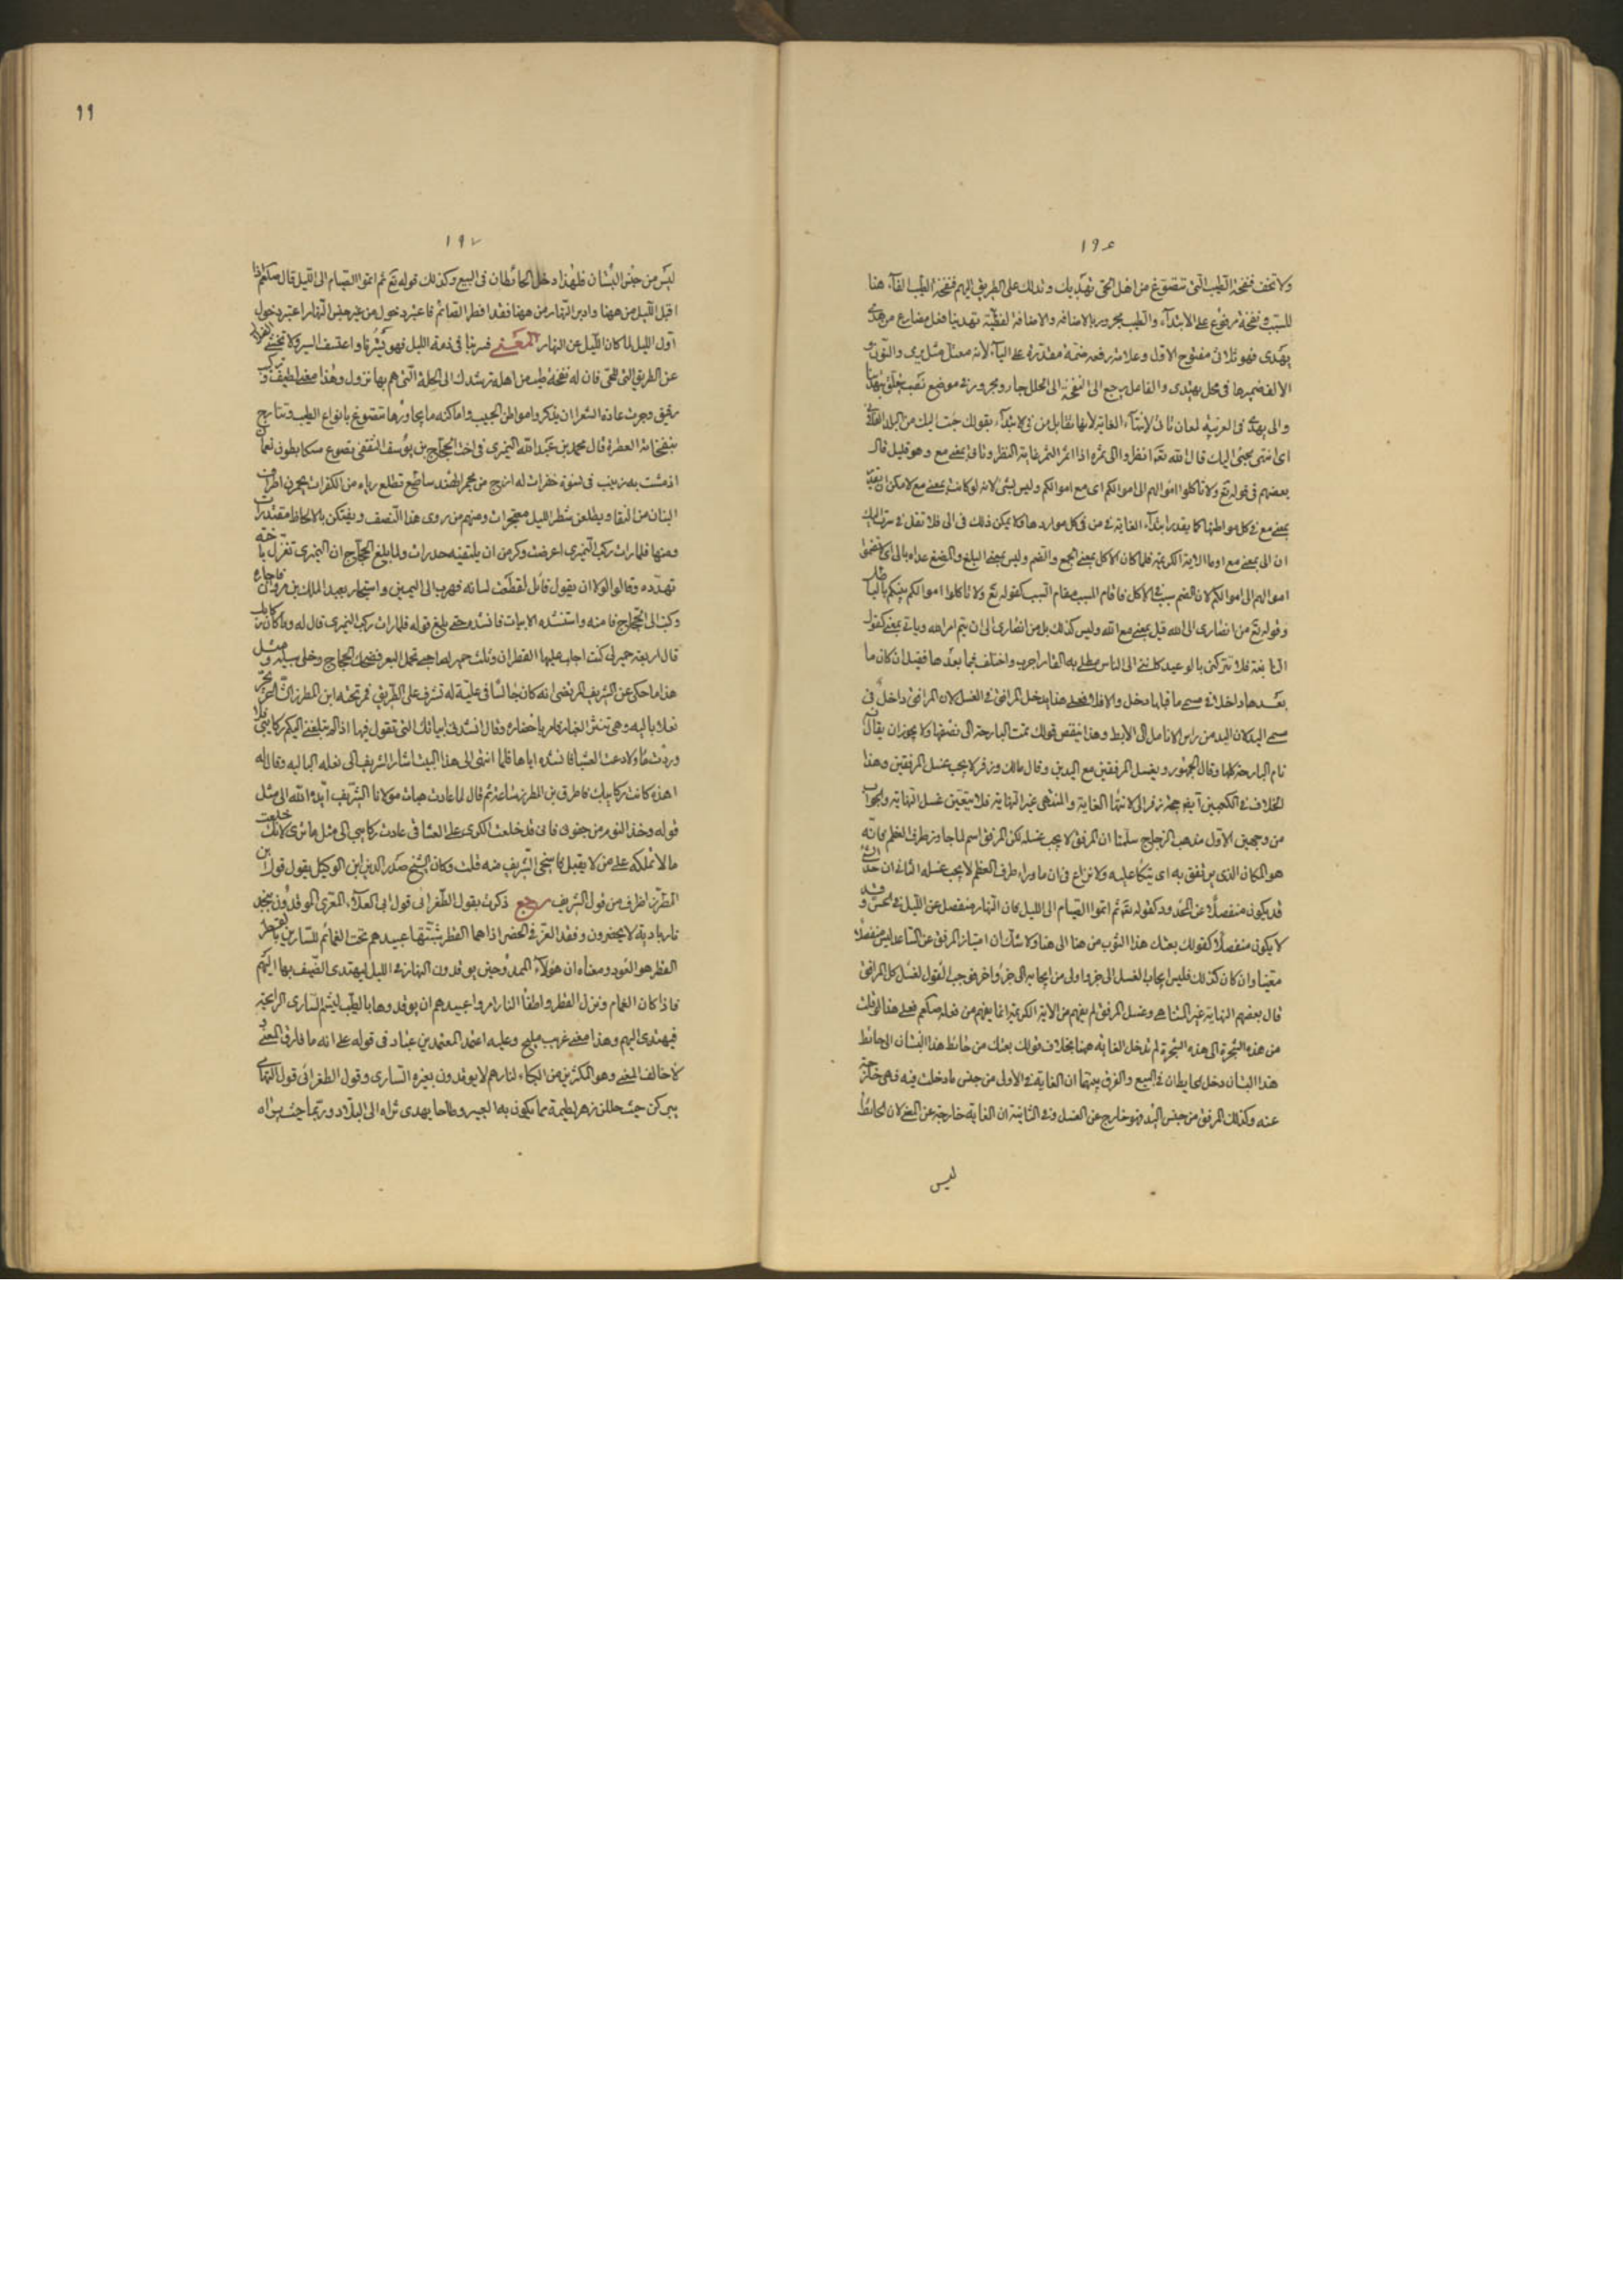 ١٩٦
ولا تخف فنفحة الطيب التى تتضوع من اهل الحى تهديك وتدلك على الطريق اليهم فنفحة الطيب الفاء هنا
للسبب ونفحة مرفوع على الابتداء والطيب مجرور بالاضافة والاضافة لفظية تهدينا فعل مضارع من هدى
يهدى فهو ثلاثى مفتوح الاول وعلامة رفعه ضمة مقدرة على الياء لانه معتل مثل يرمى والنون و
الالف ضميرها فى محل بهتدى والفاعل يرجع الى النفحة الى الحلل جار ومجرور فى موضع نصب تعلق بتهدينا
والى يهدى فى العربية لمعان تاتى لانتهاء الغاية لانها تقابل من فى الابتداء بقولك جئت اليك من البلد الفلانى
اى انتهى مجيئى اليك قال الله تعالى انظروا الى ثمره اذا اثمر الثمر غاية النظر وتاتى بمعنى مع وهو قليل قال
بعضهم فى قوله تع ولا تاكلوا اموالهم الى اموالكم اى مع اموالكم وليس بشئ لانه لو كانت بمعنى مع لامكن ان تقدر
بمعنى مع فى كل مواطنها كما يقدر ابتداء الغاية فى من فى كل مواردها ولا يمكن ذلك فى الى فلا تقل فى سرت اليك
ان الى بمعنى مع اوما الاية الكريمة فلما كان الاكل بمعنى الجمع والضم وليس بمعنى البلع والمضغ عداه بالى اى لا تضموا
اموالهم الى اموالكم لان الضم سبب فى الاكل فاقام المسبب مقام السبب كقوله تع ولا تاكلوا اموالكم بينكم بالباطل
وقوله تع من انصارى الى الله قيل بمعنى مع الله وليس كذلك بل من انصارى الى ان يتم امر الله وياتى بمعنى كقول
النابغة فلا تتركنى بالوعيد كاننى الى الناس مطلى به القار اجرب واختلف فيما بعدها فقيل ان كان ما
بعدها داخلا فى مسمى ما قبلها دخل والا فلا فعلى هذا يدخل المرافق فى الغسل لان المرافق داخل فى
مسمى اليد لان اليد من راس الانامل الى الابط وهذا ينقض قولك نمت البارحة الى نصفها ولا يجوز ان يقال
نام البارحة كلها وقال الجمهور ويغسل المرفقين مع اليدين وقال مالك وزفر لا يجب غسل المرفقين وهذا
الخلاف فى الكعبين ايضا حجة زفر الى لانتهاء الغاية والمنتهى غير النهاية فلا يتعين غسل النهاية والجواب
من وجهين الاول مذهب الزجاج سلمنا ان المرفق لا يجب غسله لكن المرفق اسم لما جاوز طرف العظم كانه
هو المكان الذى يرتفق به اى يتكا عليه ولا نزاع فى ان ما وراء طرف العظم لا يجب غسله الثانى ان حد الشئ
قد يكون منفصلا عن المحدود كقوله تعالى ثم اتموا الصيام الى الليل فان النهار منفصل عن الليل فى الحس وقد
لا يكون منفصلا كقولك بعتك هذا الثوب من هنا الى هنا ولا شك ان امتياز المرفق عن الساعد ليس منفصلا
معينا وان كان كذلك فليس ايجاب الغسل الى جزء اولى من ايجابه الى جزء اخر فوجب القول لغسل كل المرافق
قال بعضهم النهاية غير المتناهى وغسل المرفق لم يفهم من الاية الكريمة انما يفهم من فعله صلعم فعلى هذا لو قلت
من هذه الشجرة الى هذه الشجرة لم تدخل الغاية ههنا بخلاف قولك بعتك من حائط هذا البستان الى حائط
هذا البستان دخل الحايطان فى البيع والفرق بينهما ان الغاية فى الاولى من جنس ما دخلت فيه فهى خارجة
عنه وكذلك المرفق من جنس اليد فهو خارج عن الغسل وفى الثانية ان الغاية خارجة عن البيع لان الحائط
ليس
١١
١٩٧
ليس من جنس البستان فلهذا دخل الحائطان فى البيع وكذلك قوله تع ثم اتموا الصيام الى الليل قال صلعم اذا
اقبل الليل من ههنا وادبر النهار من ههنا فقد افطر الصائم فاعتبر دخول من غير جنس النهار اعتبر دخول
اول الليل لما كان الليل عن النهار المعنى فسر بنا فى ذمة الليل فهو يسترنا واعتسف السير ولا تخش
عن الطريق التى للحى فان له نفحة طيب من اهله ترشدك الى الحلة التى هم بها نزول وهذا معنى لطيف
رقيق وجرت عادة الشعرا ان يذكروا مواطن الحبيب واماكنه ما يجاورها تتضوع بانواع الطيب وتتارج
بنفحاته العطرة قال محمد بن عبد الله النميرى فى اخت الحجاج بن يوسف الثقفى تضوع مسكا بطن نعمان
اذ مشت به زينب فى نسوة خفرات له ارج من مجمر الهند ساطع تطلع رياه من الكفرات يخمرن اطراف
البنان من التقا ويطلعن شطر الليل معتجرات ومنهم من روى هذا النصف ويفتكن بالالحاظ مقتدرات
ومنها فلما رات ركب النميرى اعرضت وكن من ان يلقينه حذرات ولما بلغ الحجاج ان النميرى تغزل باخته
تهدده وقال لولا ان يقول قائل لقطعت لسانه فهرب الى اليمن واستجار بعبد الملك بن مروان فاجاره
وكتب الى الحجاج فامنه واستنشده الابيات فانشده حتى بلغ قوله فلما رات ركب النميرى قال له وما كان ركابك
قال اربعة حمير لى كنت اجلب عليها القطران وثلث حمير لصاحبى تحمل البعر فضحك الحجاج وخلى سبيله ومثل
هذا ما حكى عن الشريف المرتضى انه كان جالسا فى علية له تشرف على الطريق فمر تحته ابن المطرز الشاعر يجر
نعلا باليه وهى تثير الغبار فامر باحضاره وقال انشدنى ابياتك التى تقول فيها اذا لم تبلغنى اليكم ركائبى فلا
وردت ماء ولا رعت العشبا فانشده اياها فلما انتهى الى هذا البيت اشار الشريف الى نعله الباليه وقال له
اهذه كانت ركايبك فاطرق بن المطرز ساعة ثم قال لما عادت هبات مولانا الشريف ايده الله الى مثل
قوله وخذ النوم من جفونى فانى قد خلعت الكرى على العشاق عادت ركايبى الى مثل ما ترى لانك خلعت
ما لا تملكه على من لا يقبل فاستحى الشريف منه قلت وكان الشيخ صدر الدين ابن الوكيل يقول قول ابن
المطرز اظرف من قول الشريف رجع ذكرت بقول الطغرائى قول ابى العلاء المعرى الموقدون بنجد
نار بادية لا يحضرون وفقد العز فى الحضر اذا هما القطر شبتها عبيدهم تحت الغمائم للسارين بالقطر
القطر هو العود ومعناه ان هؤلاء الممدوحين يوقدون النار فى الليل ليهتدى الضيف بها اليهم
فاذا كان الغمام ونزل القطر واطفا النار امروا عبيدهم ان يوقدوها بالطيب ليشم السارى الرايحة
فيهتدى اليهم وهذا معنى غريب مليح وعليه اعتمد المعتمد بن عباد فى قوله على انه ما فارق المعنى
لا خالف المعنى وهو المكثرين من الكباء لنارهم لا يوقدون بغيره للسارى وقول الطغرائى قول التهامى